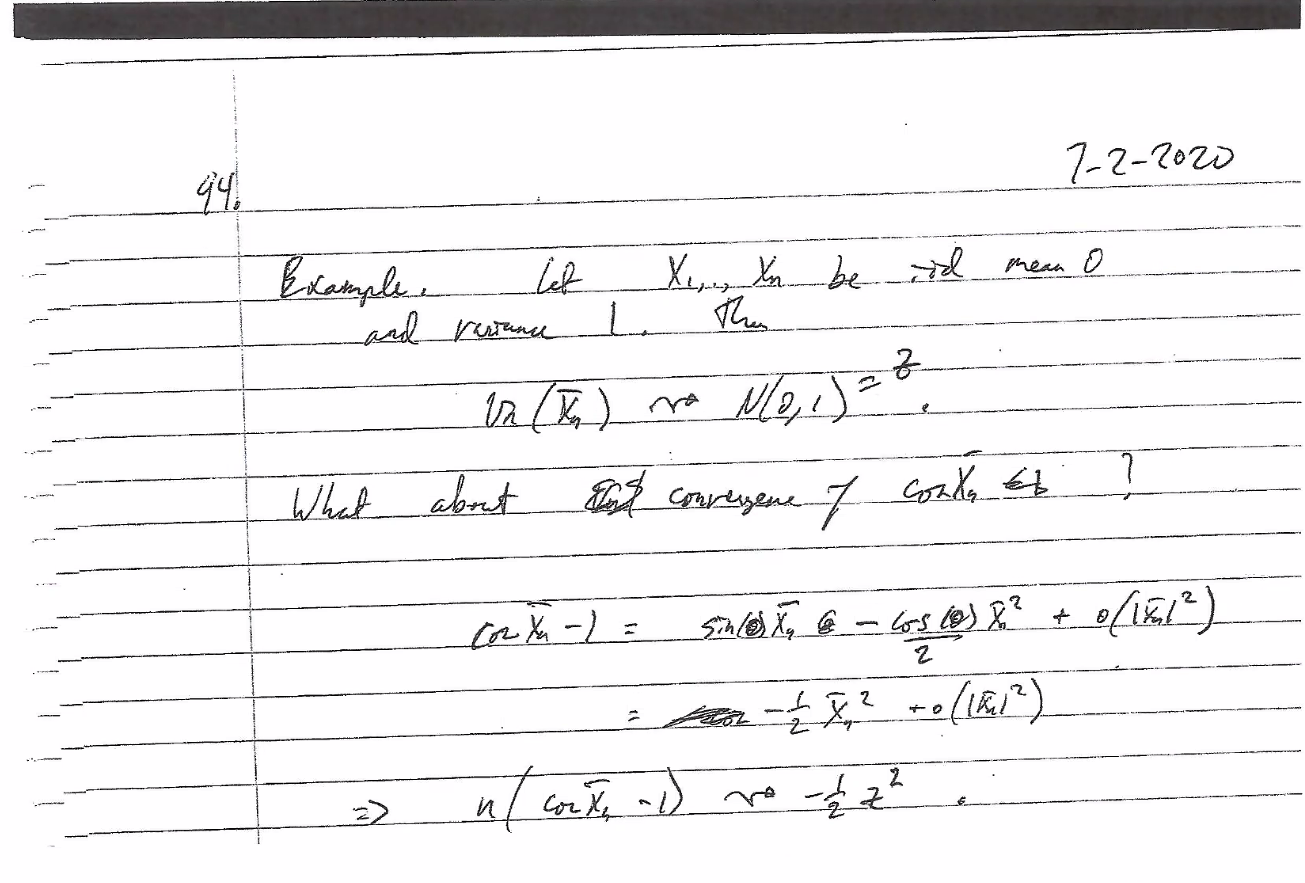 7-2-2020
94.
Example. Let X₁,.., Xₙ be iid mean 0
and variance 1. Then
√n (X̄ₙ) ⇝ N(0,1) = Z.
What about convergene of cos X̄ₙ ?
cos X̄ₙ - 1 = sin(0) X̄ₙ - cos(0)/2 X̄ₙ² + o(|X̄ₙ|²)
= - 1/2 X̄ₙ² + o(|X̄ₙ|²)
=> n(cos X̄ₙ - 1) ⇝ - 1/2 Z².